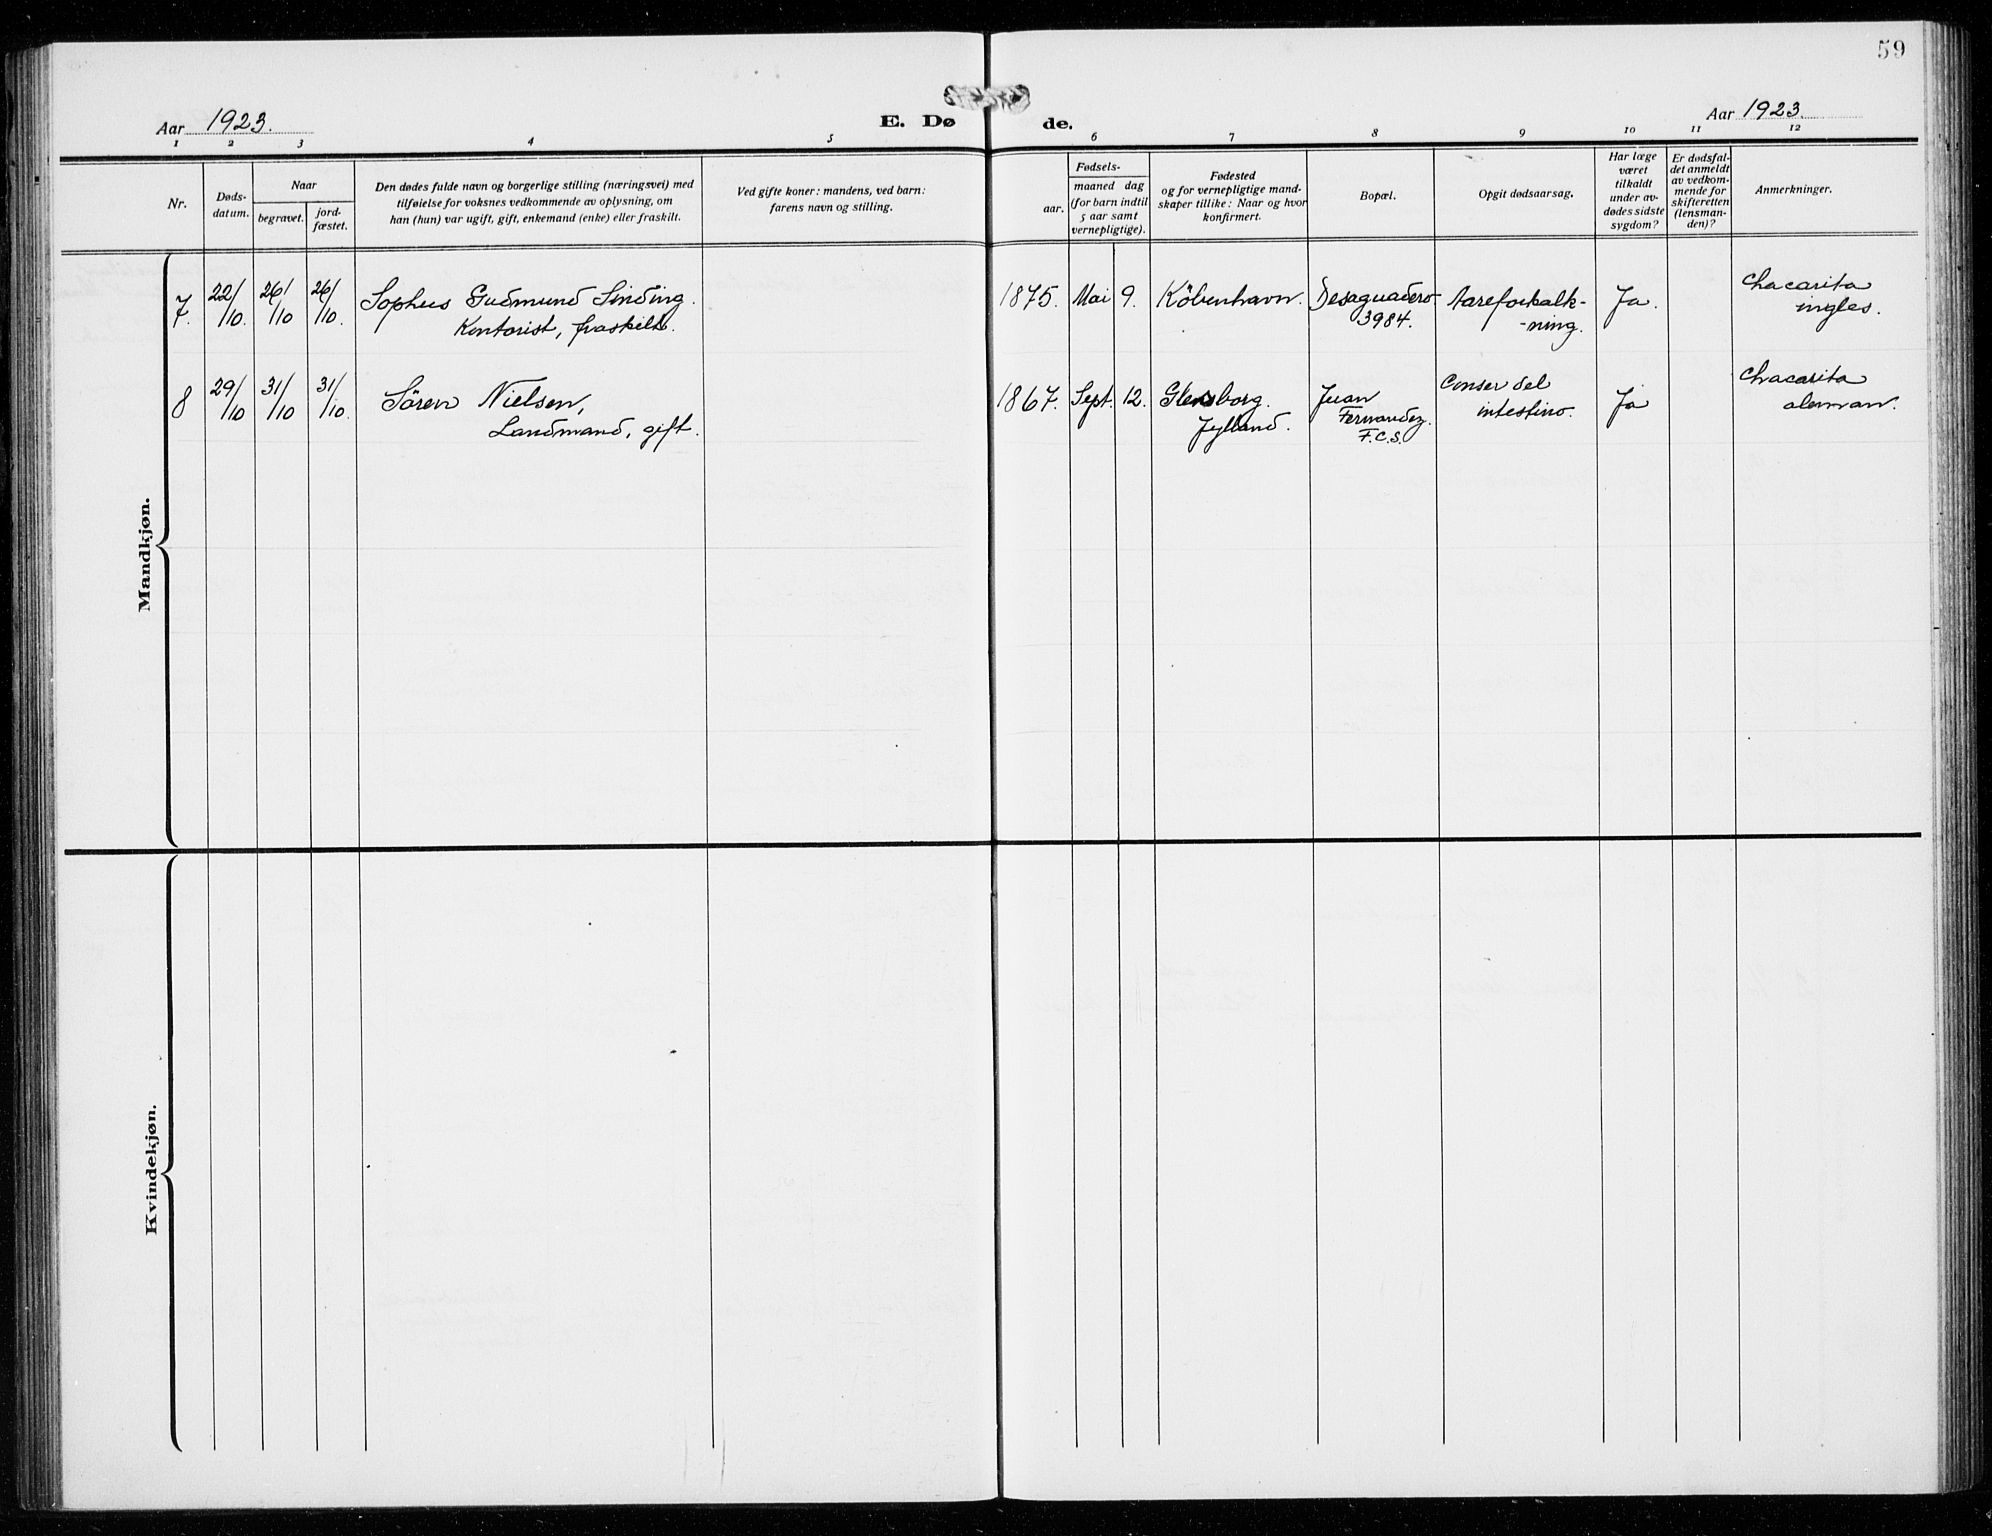 59
Aar 1923.
E. Døde.
Aar 1923.
1 2 3 4 5 6 7 8 9 10 11 12
Nr.
Døds-
datum.
Naar
begravet.
jord-
fæstet.
Den dødes fulde navn og borgerlige stilling (næringsvei) med
tilføielse for voksnes vedkommende av oplysning, om
han (hun) var ugift, gift, enkemand (enke) eller fraskilt.
Ved gifte koner: mandens, ved barn:
farens navn og stilling.
Fødsels-
aar.
maaned dag
(for barn indtil
5 aar samt
vernepligtige).
Fødested
og for vernepligtige mand-
skaper tillike: Naar og hvor
konfirmert.
Bopæl.
Opgit dødsaarsag.
Har læge
været
tilkaldt
under av-
dødes sidste
sygdom?
Er dødsfal-
det anmeldt
av vedkom-
mende for
skifteretten
(lensman-
den)?
Anmerkninger.
Mandkjøn.
7. 22/10 26/10 26/10. Sophus Gudmund Sinding.
Kontorist, fraskilt.
1875. Mai 9. Köbenhavn.
Desaguadero
3984.
Aareforkalk-
-ning.
Ja.
Chacarita
ingles.
8 29/10 31/10 31/10. Sören Nielsen,
Landmand, gift.
1867. Sept. 12. Glensborg.
Jylland.
Juan
Fernandez.
F.C.S.
Conser del
intestino.
Ja
Chacarita
aleman.
Kvindekjøn.